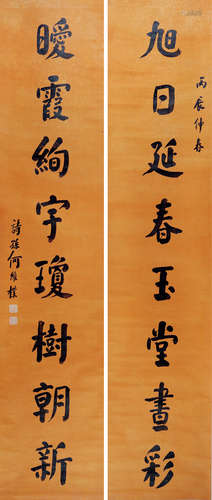 丙辰仲春
旭日延春玉堂晝彩
曖霞絢宇瓊樹朝新
詩孫何維樸